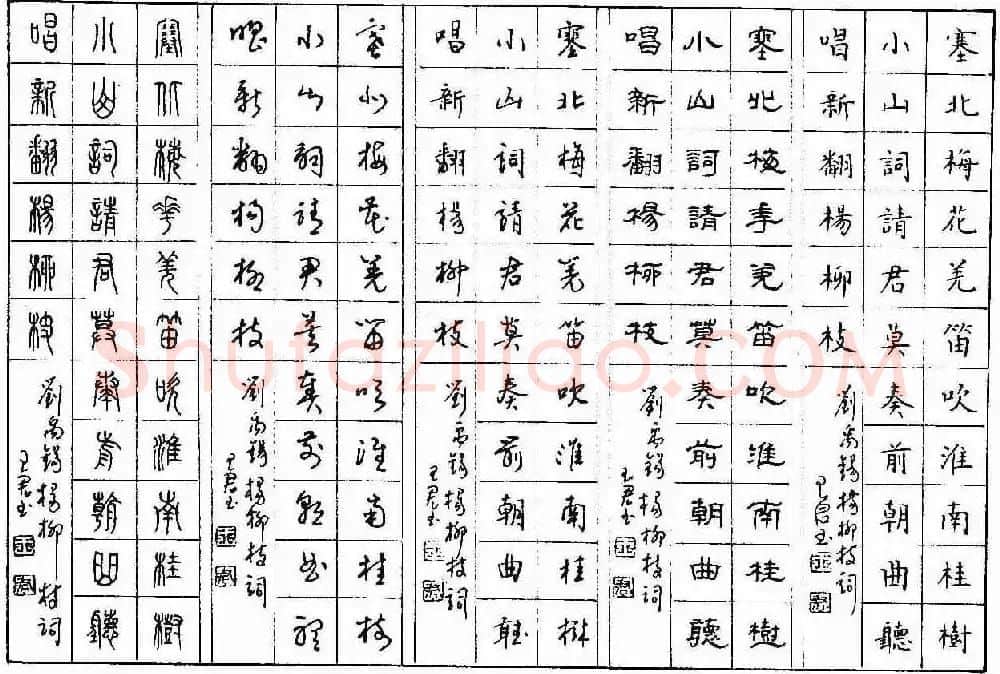 塞北梅花羌笛吹淮南桂樹
小山詞請君莫奏前朝曲聽
唱新翻楊柳枝
劉禹錫楊柳枝詞
塞北梅花羌笛吹淮南桂樹
小山詞請君莫奏前朝曲聽
唱新翻楊柳枝
劉禹錫楊柳枝詞
塞北梅花羌笛吹淮南桂樹
小山詞請君莫奏前朝曲聽
唱新翻楊柳枝
劉禹錫楊柳枝詞
塞北梅花羌笛吹淮南桂枝
小山詞請君莫奏前朝曲聽
唱新翻楊柳枝
劉禹錫楊柳枝詞
塞北梅花羌笛吹淮南桂樹
小山詞請君莫奏前朝曲聽
唱新翻楊柳枝
劉禹錫楊柳枝詞
Shufaziliao.COM